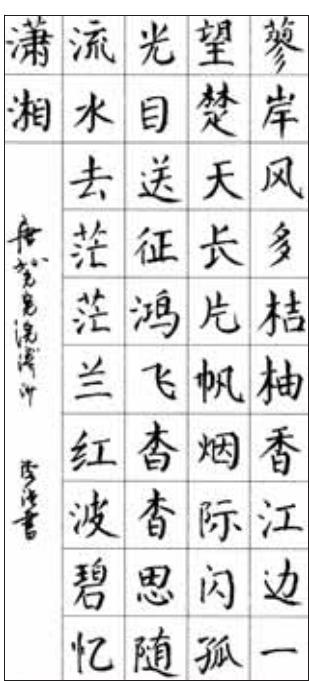 蓼岸风多桔柚香江边一
望楚天长片帆烟际闪孤
光目送征鸿飞杳杳思随
流水去茫茫兰红波碧忆
潇湘
唐孙光宪浣溪沙
書